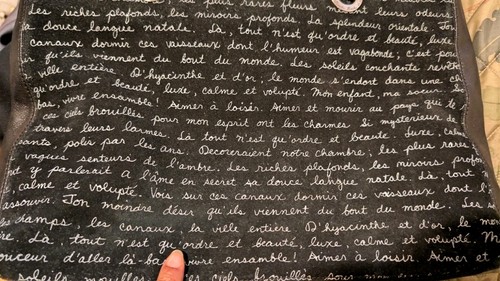 les plus rares fleurs
Les riches plafonds, les miroirs profonds. La splendeur orientale. Ton
sa douce langue natale. Là, tout n'est qu'ordre et beauté, luxe,
canaux dormir ces vaisseaux dont l'humeur est vagabonde; c'est pour
qu'ils viennent du bout du monde. Les soleils couchants revêt
ville entière. D'hyacinthe et d'or; le monde s'endort dans une ch
qu'ordre et beauté, luxe, calme et volupté. Mon enfant, ma soeur,
bas, vivre ensemble! Aimer à loisir. Aimer et mourir au pays qui te
ces ciels brouillés pour mon esprit ont les charmes Si mystérieux de
travers leurs larmes. Là tout n'est qu'ordre et beauté. Luxe, calme
sants, polis par les ans. Decoreraient notre chambre, les plus rares
vagues senteurs de l'ambre. Les riches plafonds, les miroirs prof
y parlerait a l'âme en secret sa douce langue natale Là, tout
calme et volupté. Vois sur ces canaux dormir ces vaisseaux dont l'
assouvir. Ton moindre désir qu'ils viennent du bout du monde. Les s
champs, les canaux, la ville entière D'hyacinthe et d'or, le m
Là, tout n'est qu'ordre et beauté, luxe, calme et volupté. M
douceur d'aller là-bas vivre ensemble! Aimer à loisir. Aimer et
soleils mouillés ciels brouillés